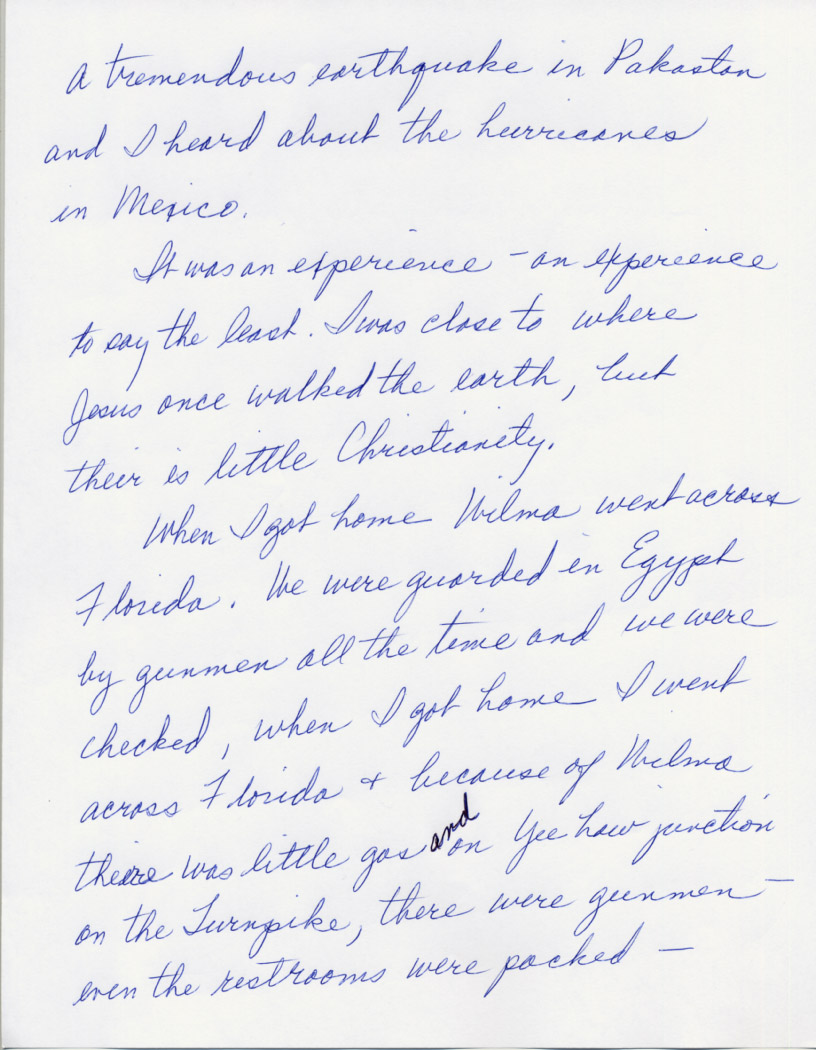 A tremendous earthquake in Pakastan
and I heard about the hurricanes
in Mexico.
It was an experience - an experience
to say the least. I was close to where
Jesus once walked the earth, but
their is little Christianity.
When I got home Wilma went across
Florida. We were guarded in Egypt
by gunmen all the time and we were
checked, when I got home I went
across Florida + because of Wilma
there was little gas and on Yee haw junction
on the Turnpike, there were gunmen -
even the restrooms were packed -